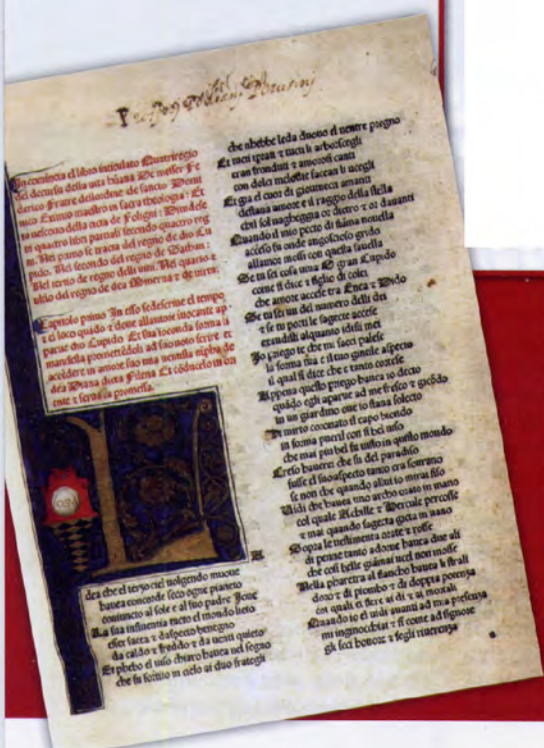 Incomincia el libro intitulato Quatriregio
del decursu della uita hũana De messer Fe
derico Fratre dellordine de sancto Domi
nico Eximio maestro in sacra theologia : Et
uescouo della cita de Foligni : Diuidese
in quattro libri partiali secondo quactro reg
ni. Nel primo se tracta del regno de dio Cu
pido. Nel secondo del regno de Sathan :
Nel terzo de regno delli uitii. Nel quarto τ
ultio del regno de dea Minerua τ de uirtu
Capitolo primo In esso se descriue el tempo
τ el loco quãdo τ doue allautore inocante ap
parue dio Cupido Et la ioconda forma
promettẽdoli ad suo noto ferire et
accẽdere in amore suo una nympha de
dea Diana dicta Filena Et cõducelo in ori
ente τ serba la promessa.
dea che el terzo ciel uolgendo muoue
hauea concorde seco ogne pianeto
coniuncto al sole e al suo padre Joue
La sua influentia tucto el mondo lieto
esser facea τ daspecto benegno
da caldo τ freddo τ da uenti quieto
Et phebo el uiso chiaro hauea nel segno
che fu sortito in cielo ai duo frategli
che nhebbe leda duouo el uentre pregno
Et tucti τ tucti li arboscegli
eran fronduti τ amorosi canti
con dolci melodie facean li ucegli
Et gia el cuor di giouineça amanti
destaua amore e il raggio della stella
chel sol uagheggia or dietro τ or dauanti
Quando il mio pecto di fiãma nouella
acceso fu onde angoscioso grido
allamor mossi con questa fauella
Se tu sei cosa uma O gran Cupido
come si dice τ figlio di colei
che amore accese tra Enea τ Dido
Se tu sei un del numero delli dei
τ se tu porti le sagecte accese
exaudisi alquanto idisii mei
Io priego te che mi facci palese
la forma tua τ il tuo gentile aspecto
il qual si dice che e tanto cortese
Appena questo priego hauea io decto
quãdo egli aparue ad me fresco τ giocõdo
in un giardino oue io staua solecto
Di mirto coronato il capo biondo
in forma pueril con si bel uiso
che mai piu bel fu uisto in questo mondo
Creso hauerei che su del paradiso
fusse el suo aspecto tanto era sourano
se non che quando allui io mirai fiso
Uidi che hauea uno archo orato in mano
col quale Achille τ Hercule percosse
τ mai quando sagecta giecta in uano
Sopra le uestimenta orate τ rosse
di penne tanto adorne hauea due ali
che cosi belle giãmai ucel non mosse
Nella pharetra al fiancho hauea li strali
doro τ di piombo τ di doppia potenza
coi quali ei fiere ai di τ ai mortali
Quando io el uidi auanti ad mia presenza
mi inginocchiai τ si come ad signore
gli feci honore τ fegli riuerenza